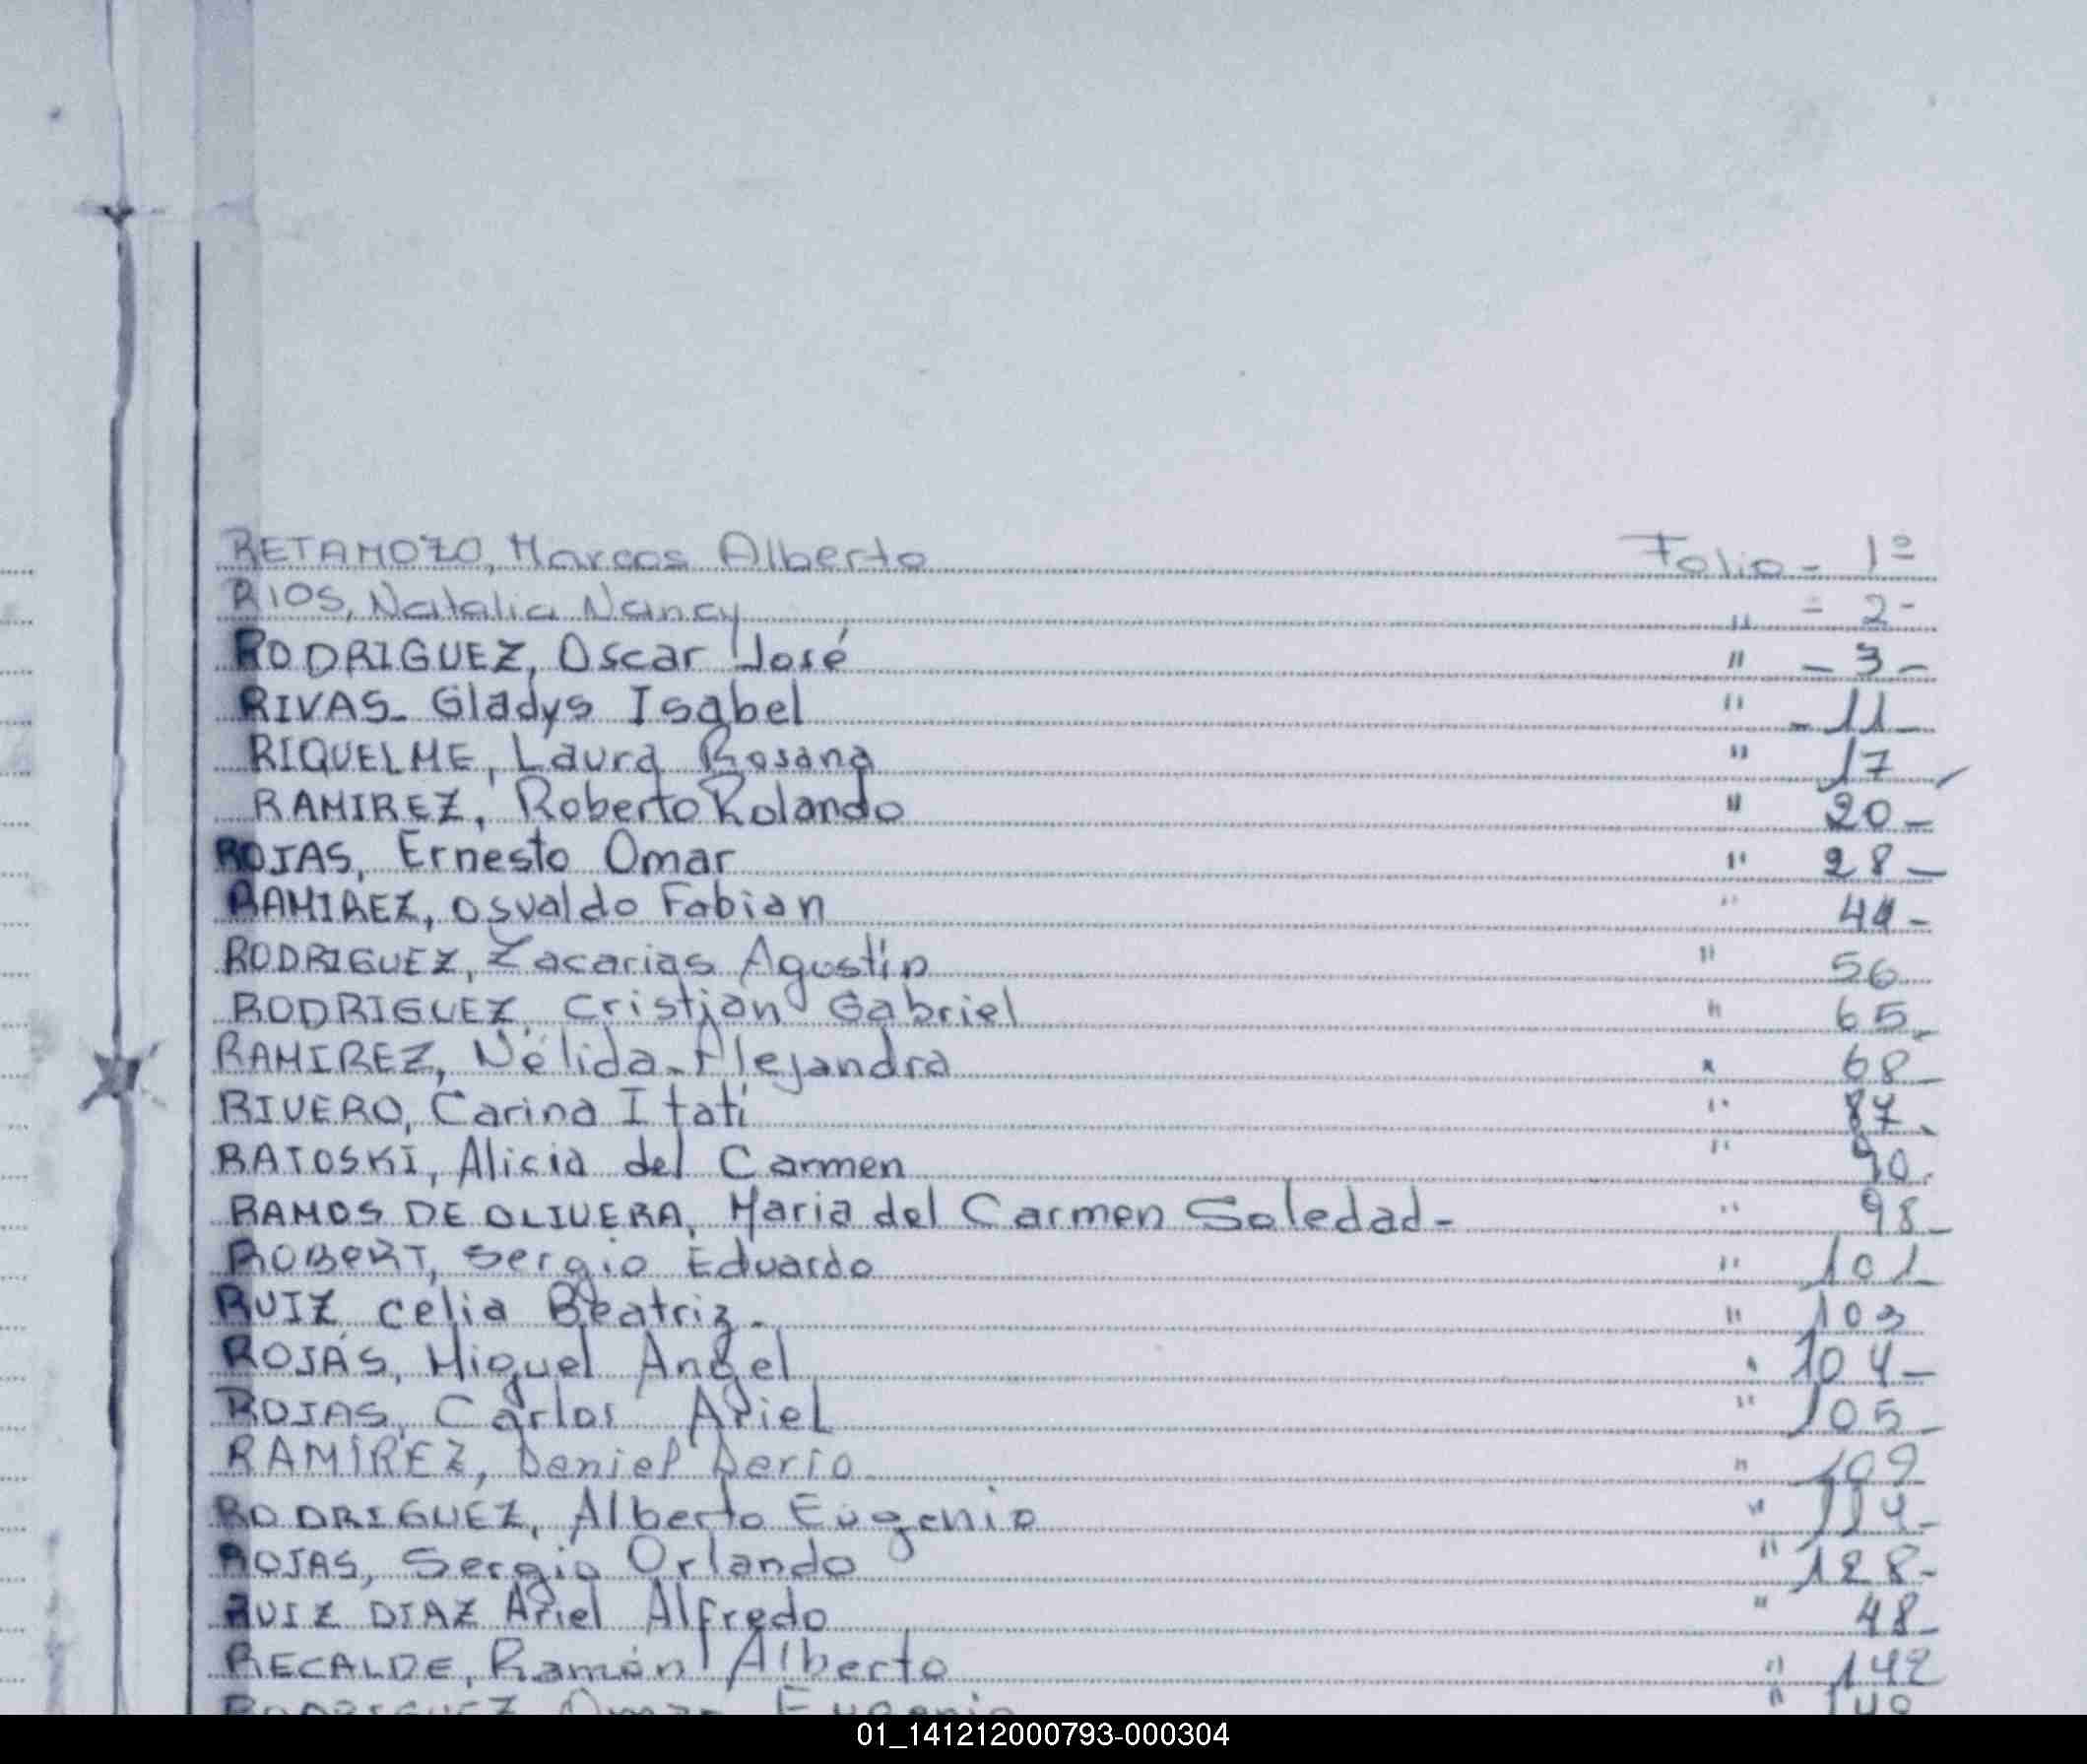 RETAMOZO, Marcos Alberto Folio - 1º
RIOS, Natalia Nancy " - 2 -
RODRIGUEZ, Oscar José " - 3 -
RIVAS - Gladys Isabel " - 11 -
RIQUELME, Laura Rosana " 17
RAMIREZ, Roberto Rolando " 20 -
ROJAS, Ernesto Omar " 28 -
RAMIREZ, Osvaldo Fabian " 44 -
RODRIGUEZ, Zacarias Agustín " 56
RODRIGUEZ, Cristian Gabriel " 65 -
RAMIREZ, Nélida Alejandra " 68 -
RIVERO, Carina Itatí " 87 -
RATOSKI, Alicia del Carmen " 90 -
RAMOS DE OLIVERA, Maria del Carmen Soledad - " 98 -
ROBERT, Sergio Eduardo " 101 -
RUIZ, Celia Beatriz - " 103
ROJAS, Miguel Angel " 104 -
ROJAS, Carlos Ariel " 105 -
RAMÍREZ, Daniel Darío " 109
RODRIGUEZ, Alberto Eugenio " 114 -
ROJAS, Sergio Orlando " 128 -
RUIZ DIAZ Ariel Alfredo " 48 -
RECALDE, Ramón Alberto " 142
RODRIGUEZ Omar Eugenio "
01_141212000793-000304